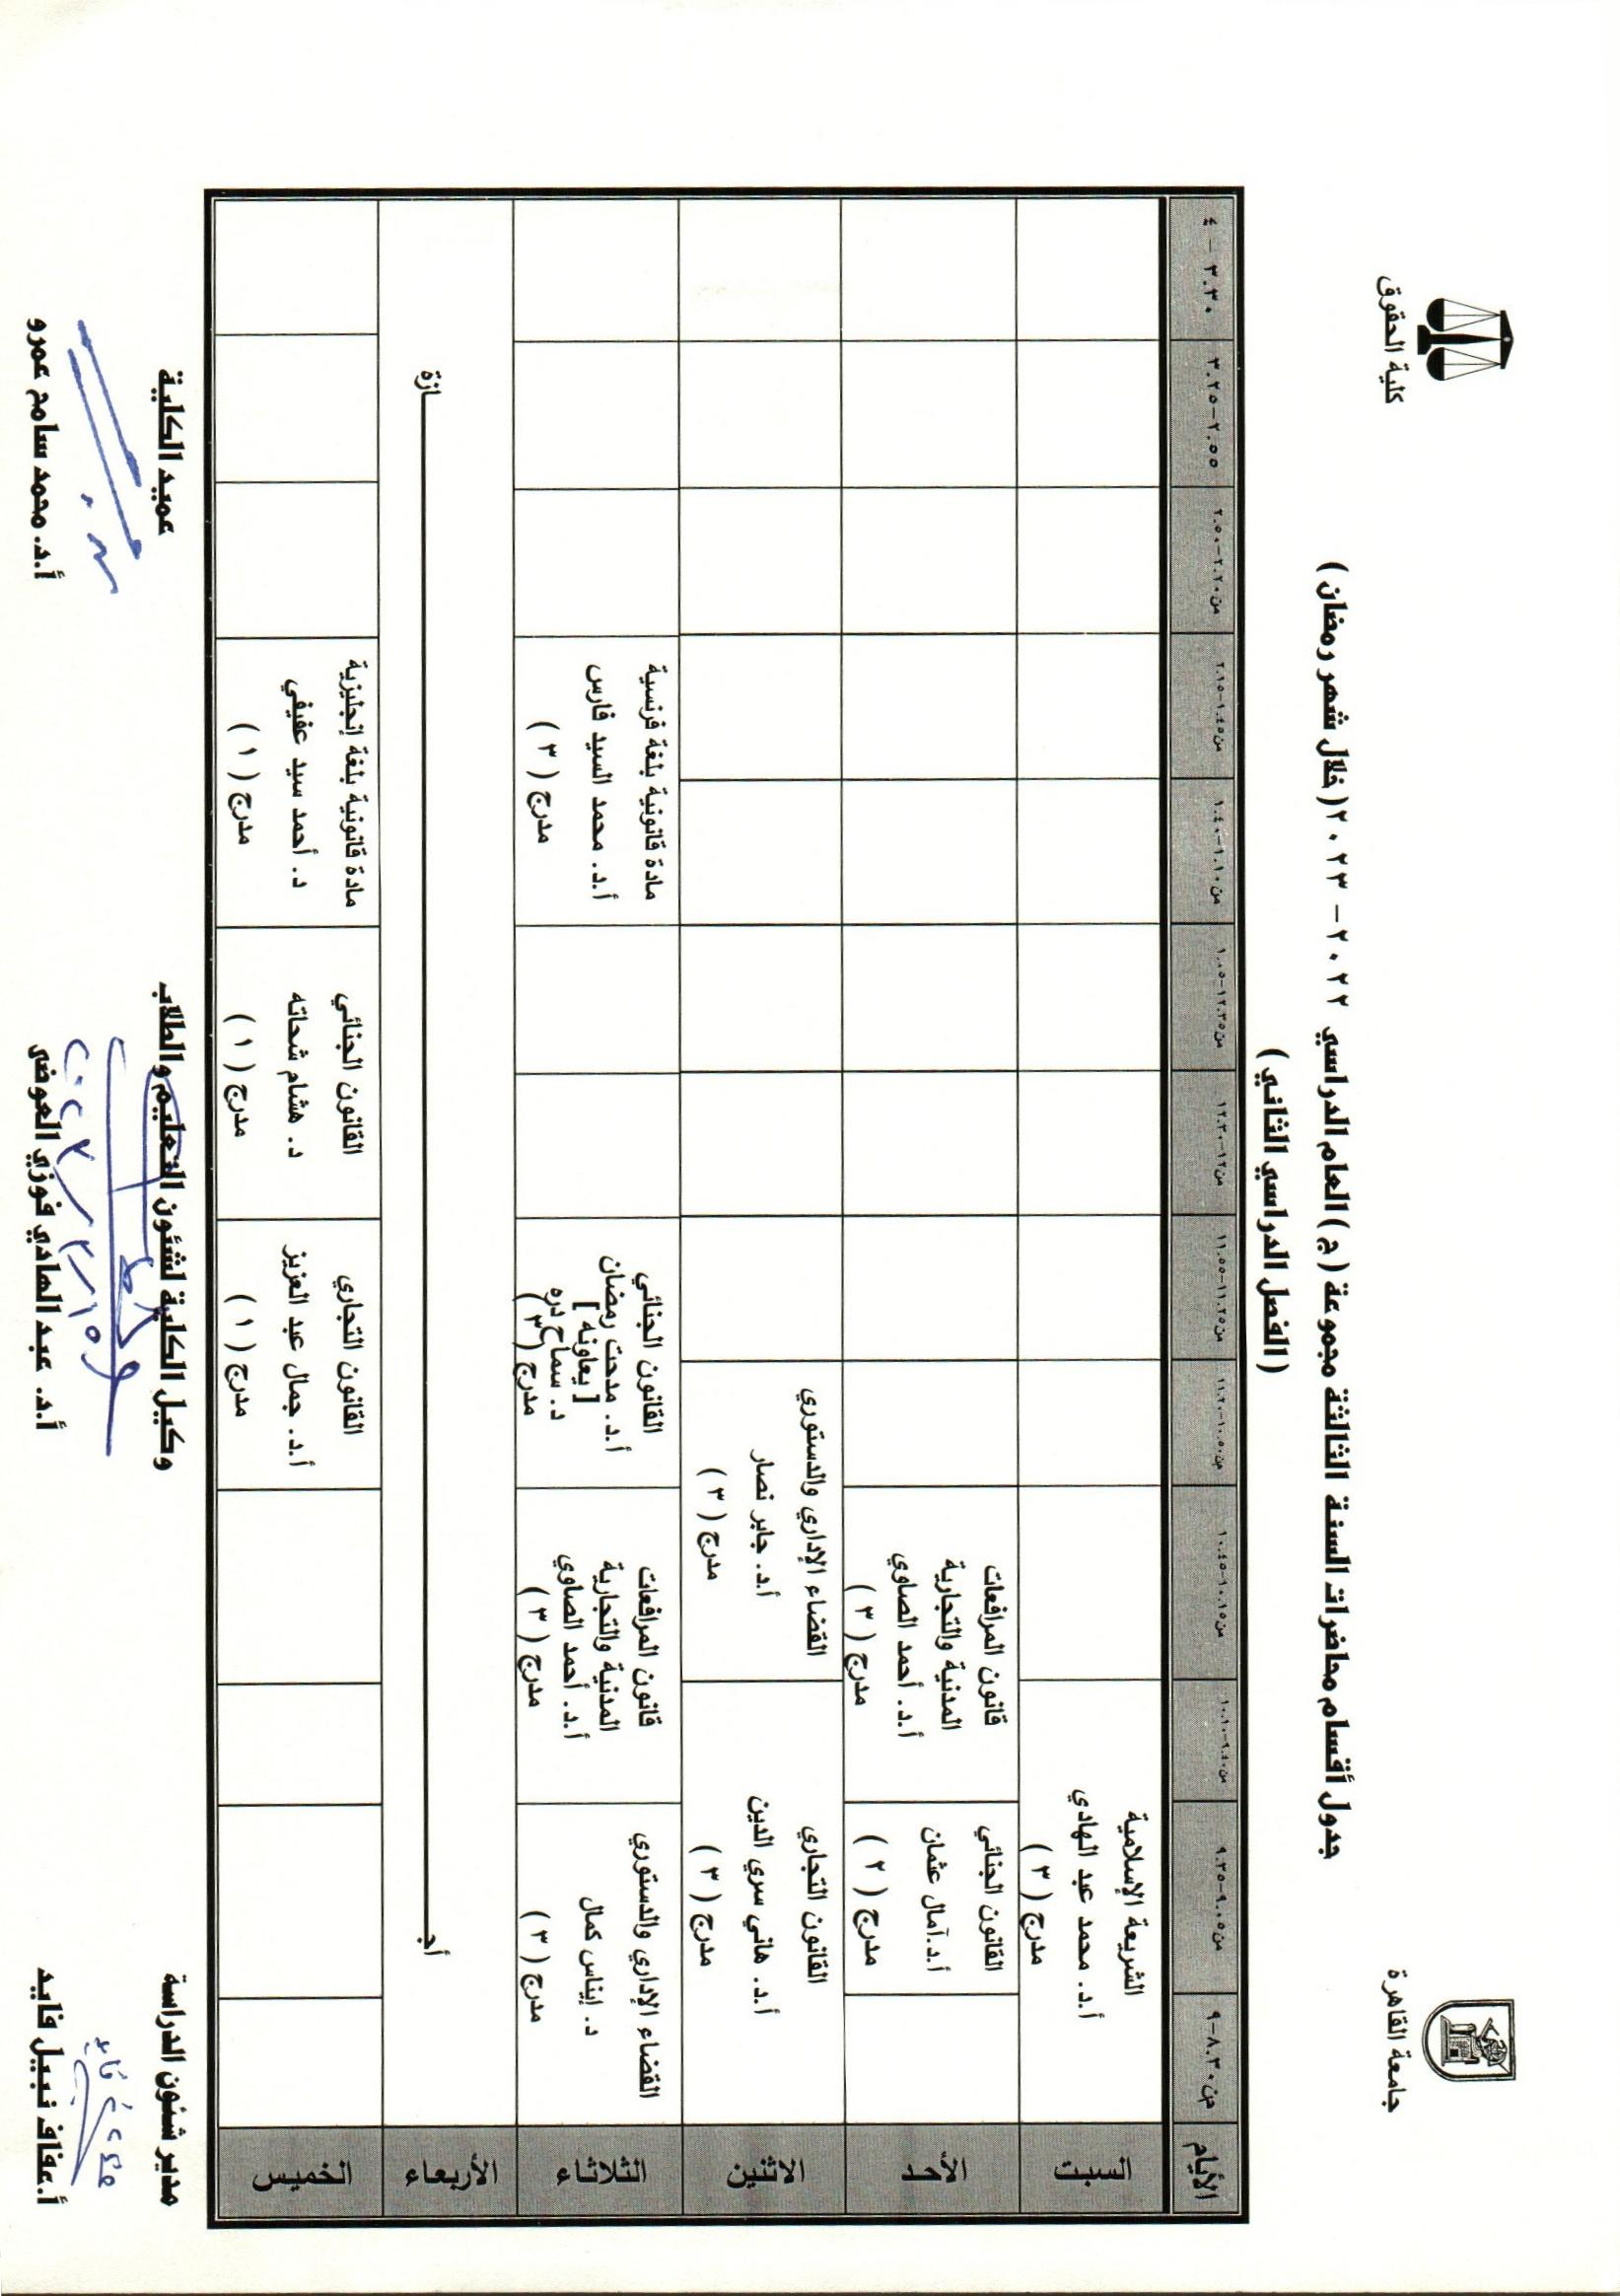 جامعة القاهرة
كلية الحقوق
جدول أقسام محاضرات السنة الثالثة مجموعة ( ج ) العام الدراسي ٢٠٢٢ - ٢٠٢٣ ( خلال شهر رمضان )
( الفصل الدراسي الثاني )
الأيام
من ٨.٣٠-٩
من ٩.٠٥-٩.٣٥
من ٩.٤٠-١٠.١٠
من ١٠.١٥-١٠.٤٥
من ١٠.٥٠-١١.٢٠
من ١١.٢٥-١١.٥٥
من ١٢-١٢.٣٠
من ١٢.٣٥-١.٠٥
من ١.١٠-١.٤٠
من ١.٤٥-٢.١٥
من ٢.٢٠-٢.٥٠
٢.٥٥-٣.٢٥
٣.٣٠ - ٤
السبت
الشريعة الإسلامية
أ.د. محمد عبد الهادي
مدرج ( ٣ )
الأحد
القانون الجنائي
أ.د.آمال عثمان
مدرج ( ٢ )
قانون المرافعات
المدنية والتجارية
أ.د. أحمد الصاوي
مدرج ( ٣ )
الاثنين
القانون التجاري
أ.د. هاني سري الدين
مدرج ( ٣ )
القضاء الإداري والدستوري
أ.د. جابر نصار
مدرج ( ٣ )
الثلاثاء
القضاء الإداري والدستوري
د. إيناس كمال
مدرج ( ٣ )
قانون المرافعات
المدنية والتجارية
أ.د. أحمد الصاوي
مدرج ( ٣ )
القانون الجنائي
أ.د. مدحت رمضان
[ يعاونه ]
د. سماح دره
مدرج ( ٣ )
مادة قانونية بلغة فرنسية
أ.د. محمد السيد فارس
مدرج ( ٣ )
الأربعاء
أجـــازة
الخميس
القانون التجاري
أ.د. جمال عبد العزيز
مدرج ( ١ )
القانون الجنائي
د. هشام شحاته
مدرج ( ١ )
مادة قانونية بلغة إنجليزية
د. أحمد سيد عفيفي
مدرج ( ١ )
مدير شئون الدراسة
وكيل الكلية لشئون التعليم والطلاب
عميد الكلية
أ.عفاف نبيل فايد
أ.د. عبد الهادي فوزي العوضي
أ.د. محمد سامح عمرو